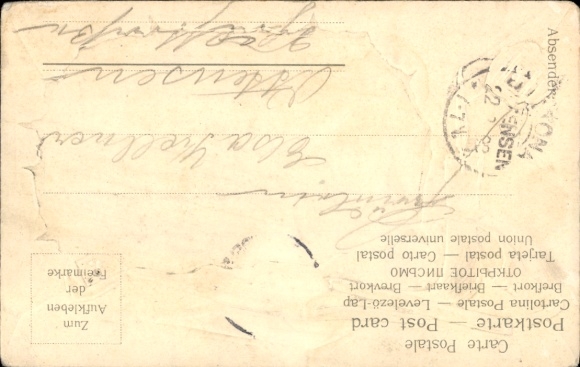 Carte Postale
Postkarte — Post card
Cartolina Postale — Levelező-Lap
Brefkort — Briefkaart — Brevkort
ОТКРЫТОЕ ПИСЬМО
Tarjeta postal — Carto postal
Union postale universelle
Zum
Aufkleben
der
Freimarke
Fräulein
Elsa Kellner
Ottensen
Absender: